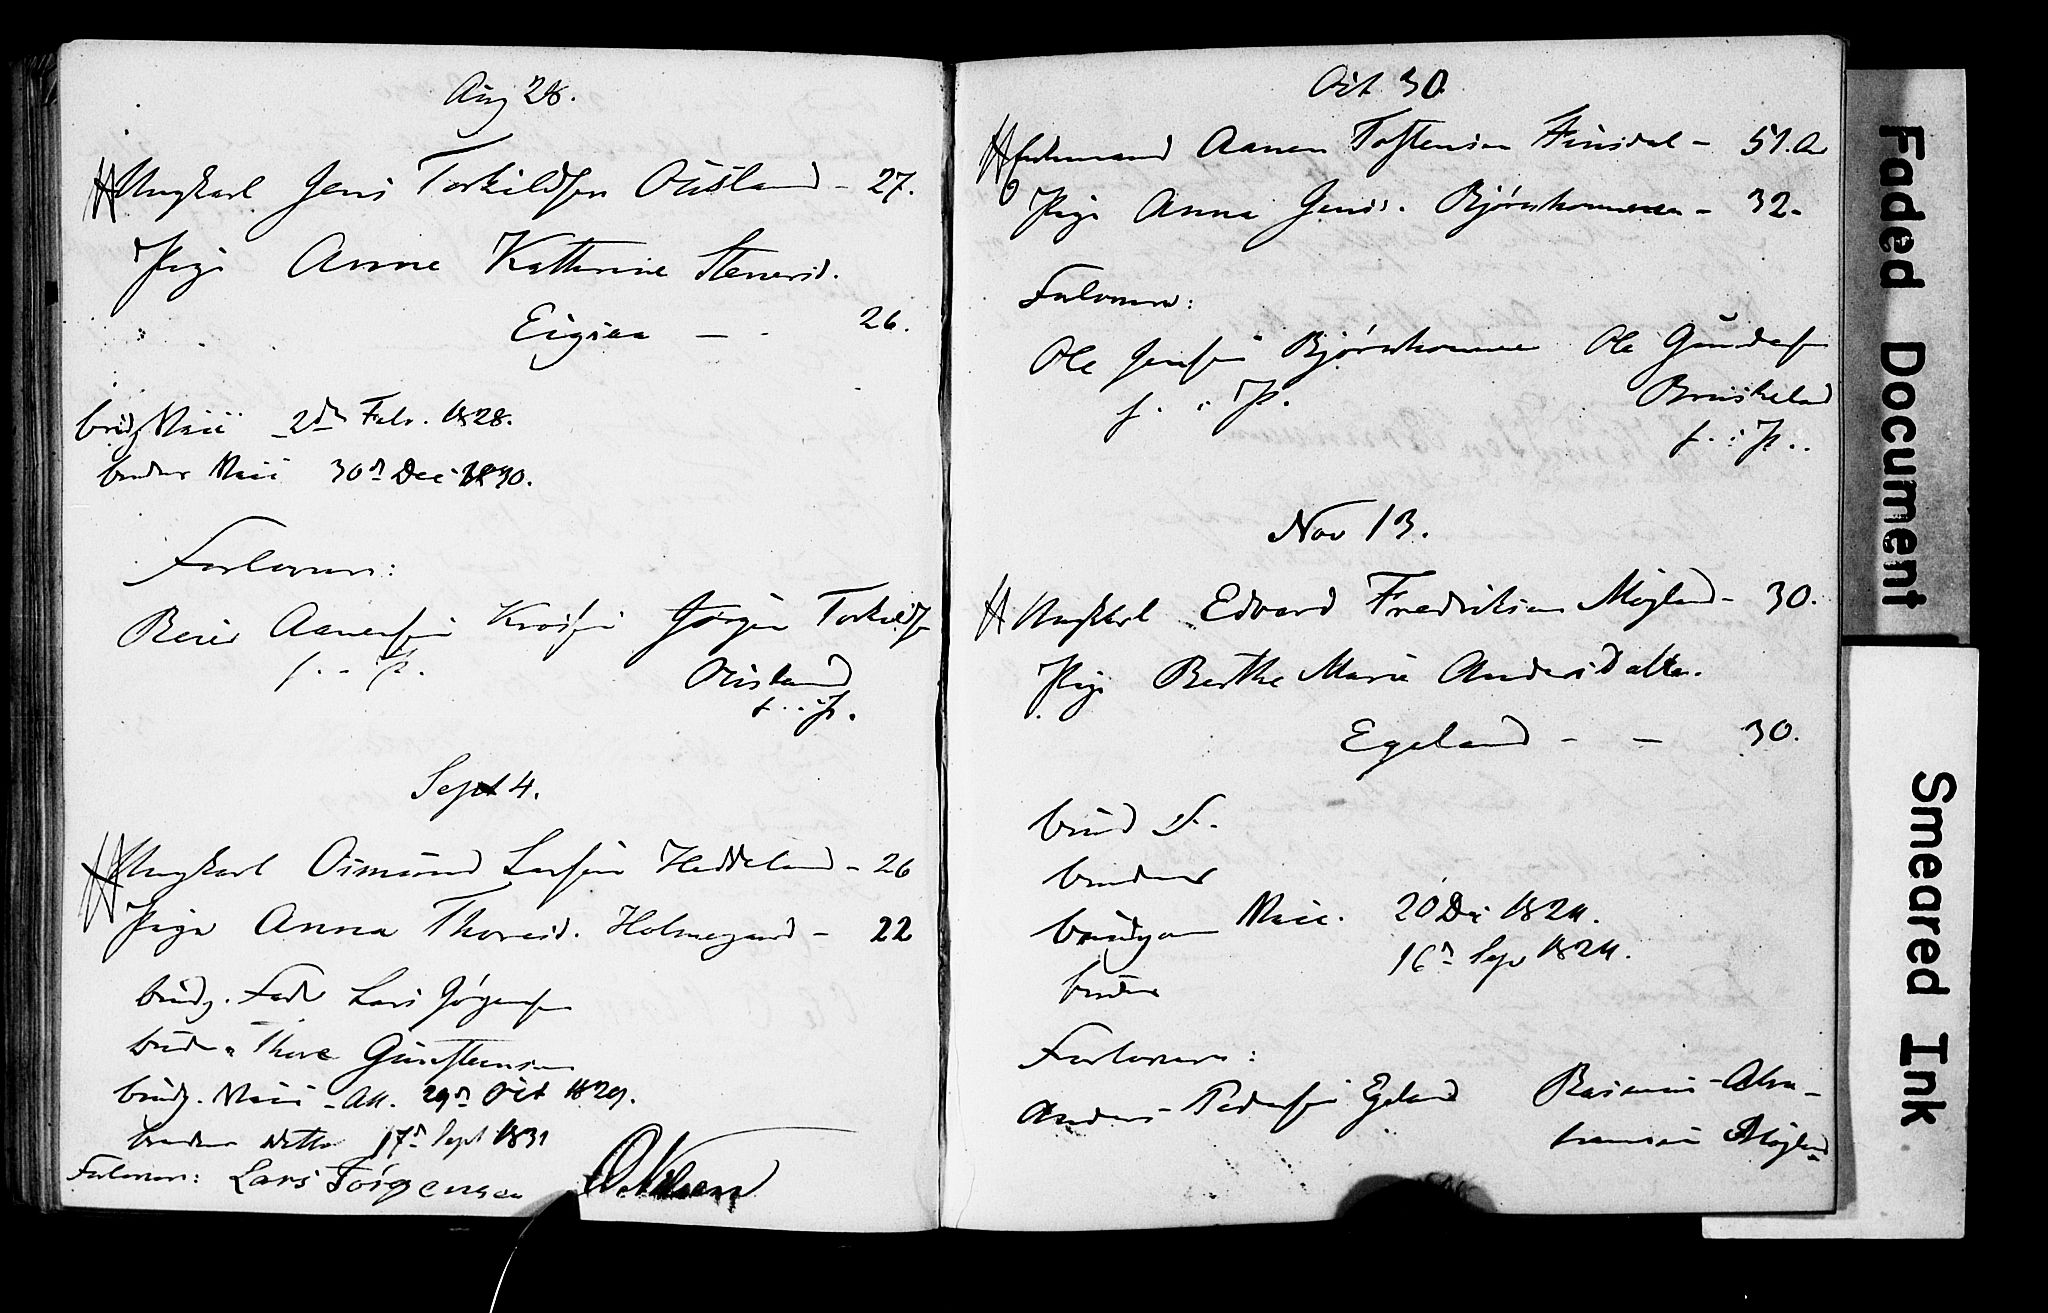 Aug 28.
Ungkarl Jens Torkildsen Ousland - 27.
Pige Anne Kathrine Stenersd.
Eigeaa - - 26.
brudg Vacc 2den Febr. 1828.
brudens Vacc 30te Dec 1830.
Forlovere:
Reier Aanensen Jørgen Torkilds
f. .. P. Ousland
f. .. P.
Sept 4.
Ungkarl Osmund Larsen Heddeland - 26
Pige Anna Thoresd. Holmegaard - 22
brudg. Fader Lars Jørgensen
brudens Thore Gundstensen
brudg. Vacc. Att. 29de Oct 1829.
brudens ditto 17de Sept 1831
Forlovere: Lars Jørgensen O. Nilsen
Oct 30
Enkemand Aanen Tostensen Finsdal - 51. Aar
Pige Anna Jensd. Bjørnhommen - 32-
Forlovere:
Ole Jensen Bjørnhommen Ole Gundersen
f. .. P. Bruskeland
f. .. P..
Nov 13.
Ungkarl Edvard Fredriksen Møgland - 30.
Pige Berthe Marie Andersdatter.
Egeland - - 30.
brud F.
brudens
brudgom Vacc. 20 Dec 1824.
16de Sep 1824.
brudens
Forlovere:
Anders Pedersen Egeland Rasmus Abra-
hamsen Møgland
Faded Document
Smeared Ink